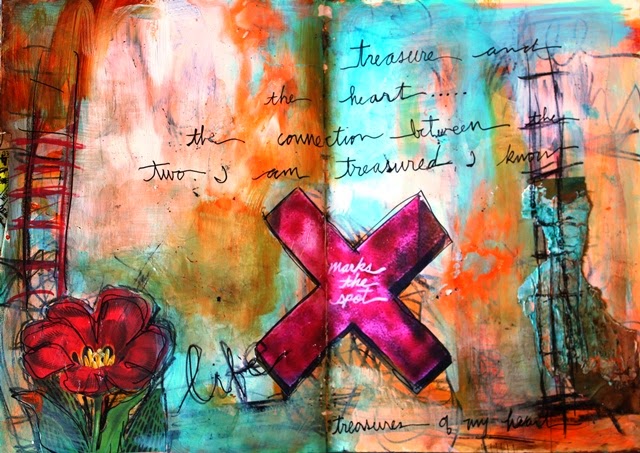 treasure and
the heart.....
the connection between the
two, I am treasured, I know
marks
the
spot
life
treasures of my heart